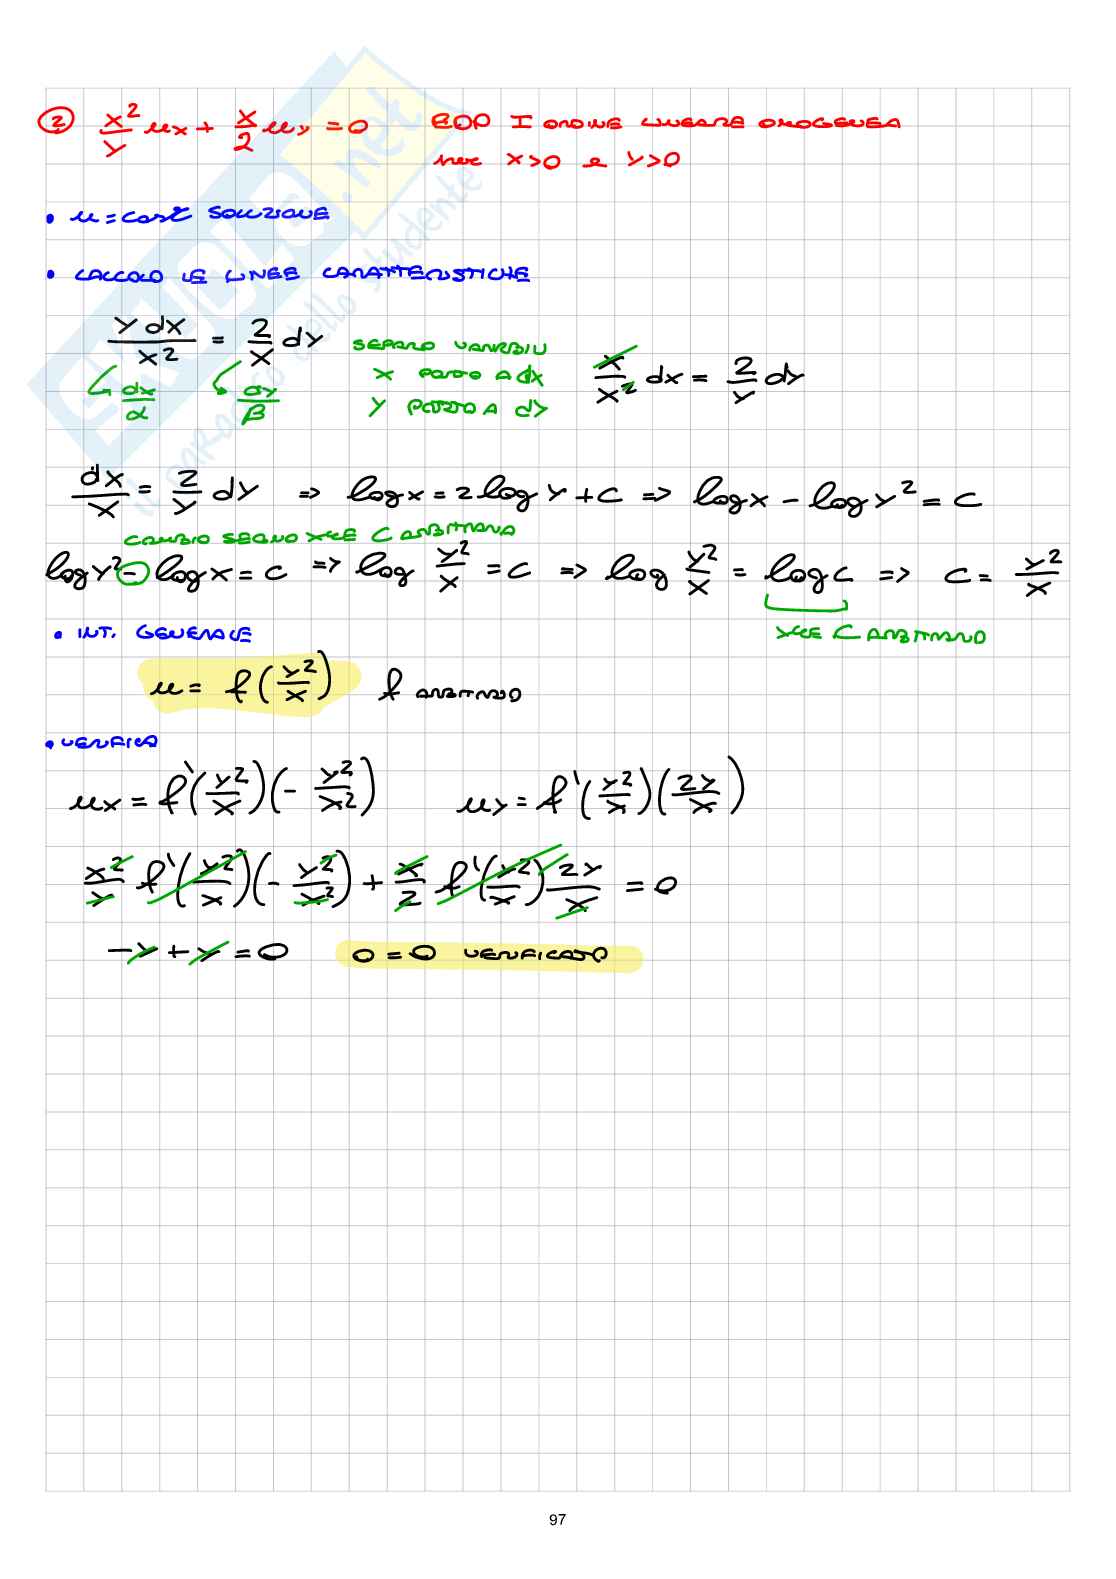 ② x²/y ux + x/2 uy = 0 EDP I ORDINE LINEARE OMOGENEA
nec x>0 e y>0
• u = cost SOLUZIONE
• CALCOLO LE LINEE CARATTERISTICHE
y dx/x² = 2/x dy SEPARO VARIABILI
dx/α dy/β x PORTO A dx x/x² dx = 2/y dy
y PORTO A dy
dx/x = 2/y dy => log x = 2 log y + c => log x - log y² = c
CAMBIO SEGNO XKE C ARBITRARIA
log y² - log x = c => log y²/x = c => log y²/x = log c => c = y²/x
• INT. GENERALE XKE C ARBITRARIO
u = f(y²/x) f ARBITRARIO
• VERIFICA
ux = f'(y²/x)(- y²/x²) uy = f'(y²/x)(2y/x)
x²/y f'(y²/x)(- y²/x²) + x/2 f'(y²/x) 2y/x = 0
-y + y = 0 0 = 0 VERIFICATO
97
STUDIES.net
dello studente